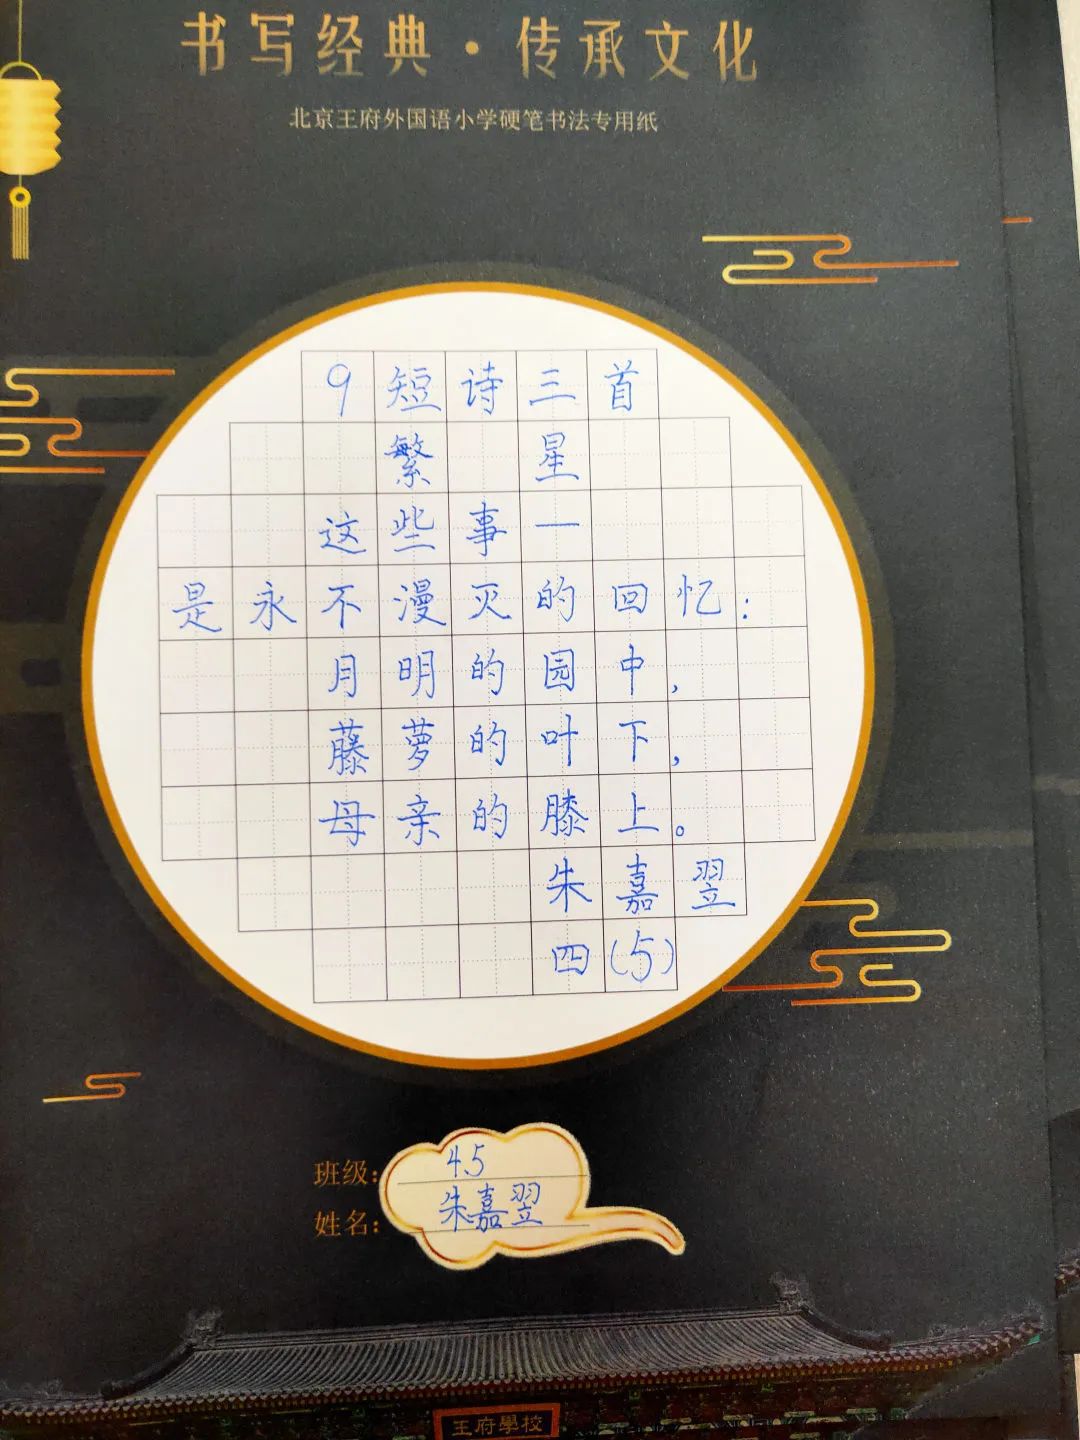 书写经典·传承文化
北京王府外国语小学硬笔书法专用纸
9短诗三首
繁星
这些事一
是永不漫灭的回忆:
月明的园中,
藤萝的叶下,
母亲的膝上。
朱嘉翌
四(5)
班级: 4.5
姓名: 朱嘉翌
王府學校